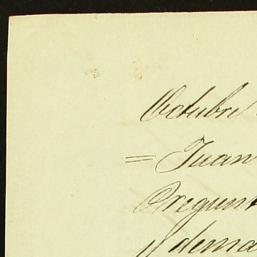 Octubre
= Juan
Pregunt
y dema